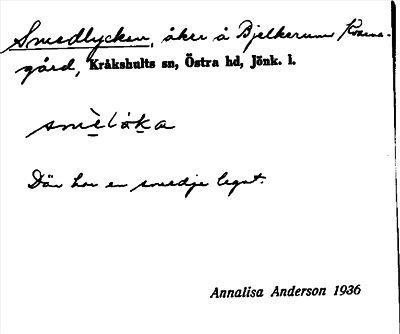 Smedlyckan, åker å Bjelkerum
gård, Kråkshults sn, Östra hd, Jönk. l.
Där har en smedja legat.
Annalisa Anderson 1936